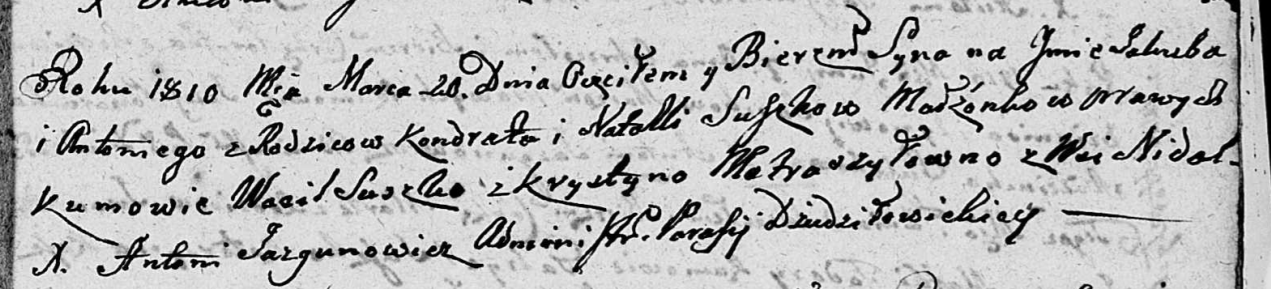 Roku 1810 Mca Marca 20. Dnia Ocrciłem y Bierzm Syna na Jmie Jakuba
i Antoniego z Rodzicow Kondrata i Natalli Suszkow Małżonkow prawych
Kumowie Wasil Suszko z Krystyno Matraszyłowno z Wsi Nidal-
X. Antoni Jazgunowicz Administr. Parafij Dziudziłowickiey